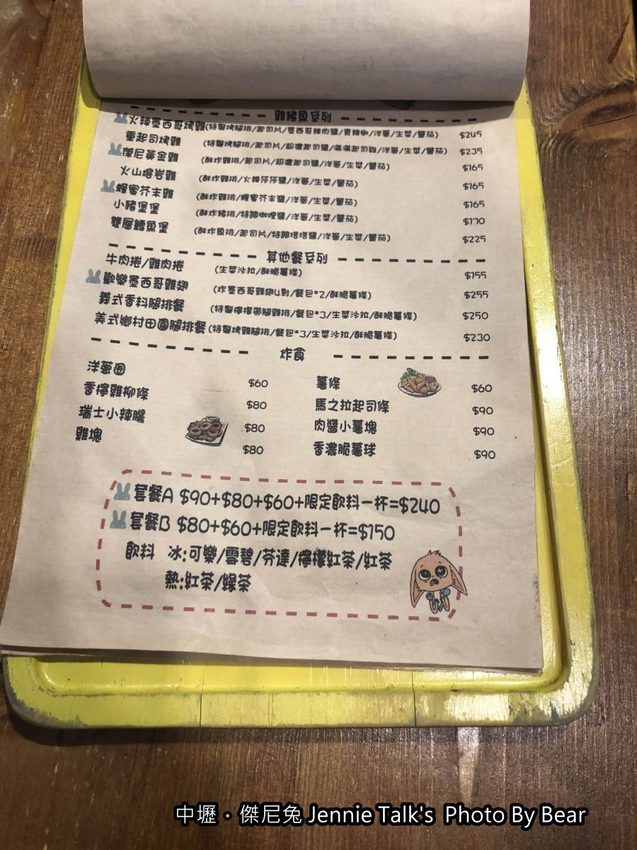 火辣墨西哥烤雞 $245
重起司烤雞 $235
傑尼黃金雞 $165
火山熔岩雞 (酥炸雞排/火辣莎莎醬/洋蔥/生菜/番茄) $165
蜂蜜芥末雞 (酥炸雞排/蜂蜜芥末醬/洋蔥/生菜/番茄) $165
小豬堡堡 (酥炸豬排/特調咖哩醬/洋蔥/生菜/番茄) $170
雙層鱈魚堡 (酥炸魚排/起司片/特調塔塔醬/洋蔥/生菜/番茄) $225
其他餐系列
牛肉捲/雞肉捲 (生菜沙拉/酥脆薯條) $155
歡樂墨西哥雞翅 (炸墨西哥雞翅4對/餐包*2/酥脆薯條) $255
義式香料腿排餐 (特製檸檬帶腿雞排/餐包*3/生菜沙拉/酥脆薯條) $250
美式鄉村田園腿排餐 (特製烤雞腿排/餐包*3/生菜沙拉/酥脆薯條) $230
炸食
洋蔥圈 $60 薯條 $60
香檸雞柳條 $80 馬之拉起司條 $90
瑞士小辣腸 $80 肉醬小薯塊 $90
雞塊 $80 香濃脆薯球 $90
套餐A $90+$80+$60+限定飲料一杯=$240
套餐B $80+$60+限定飲料一杯=$150
飲料 冰:可樂/雪碧/芬達/檸檬紅茶/紅茶
熱:紅茶/綠茶
中壢‧傑尼兔 Jennie Talk's Photo By Bear